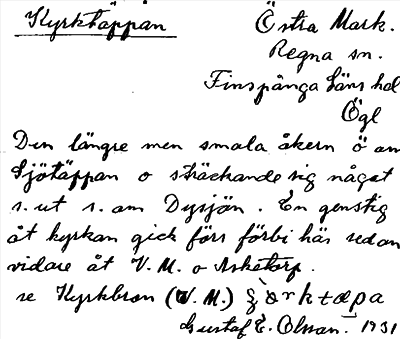 Kyrktäppan
Östra Mark.
Regna sn.
Finspånga läns hd
Ögl
Den längre men smala åkern ö om
Sjötäppan o sträckande sig något
s. ut s. om Dysjön. En genstig
åt kyrkan gick förs förbi här sedan
vidare åt V. M. o Asketorp.
se Kyrkbron (V. M.)
Gustaf E. Olsson. 1931